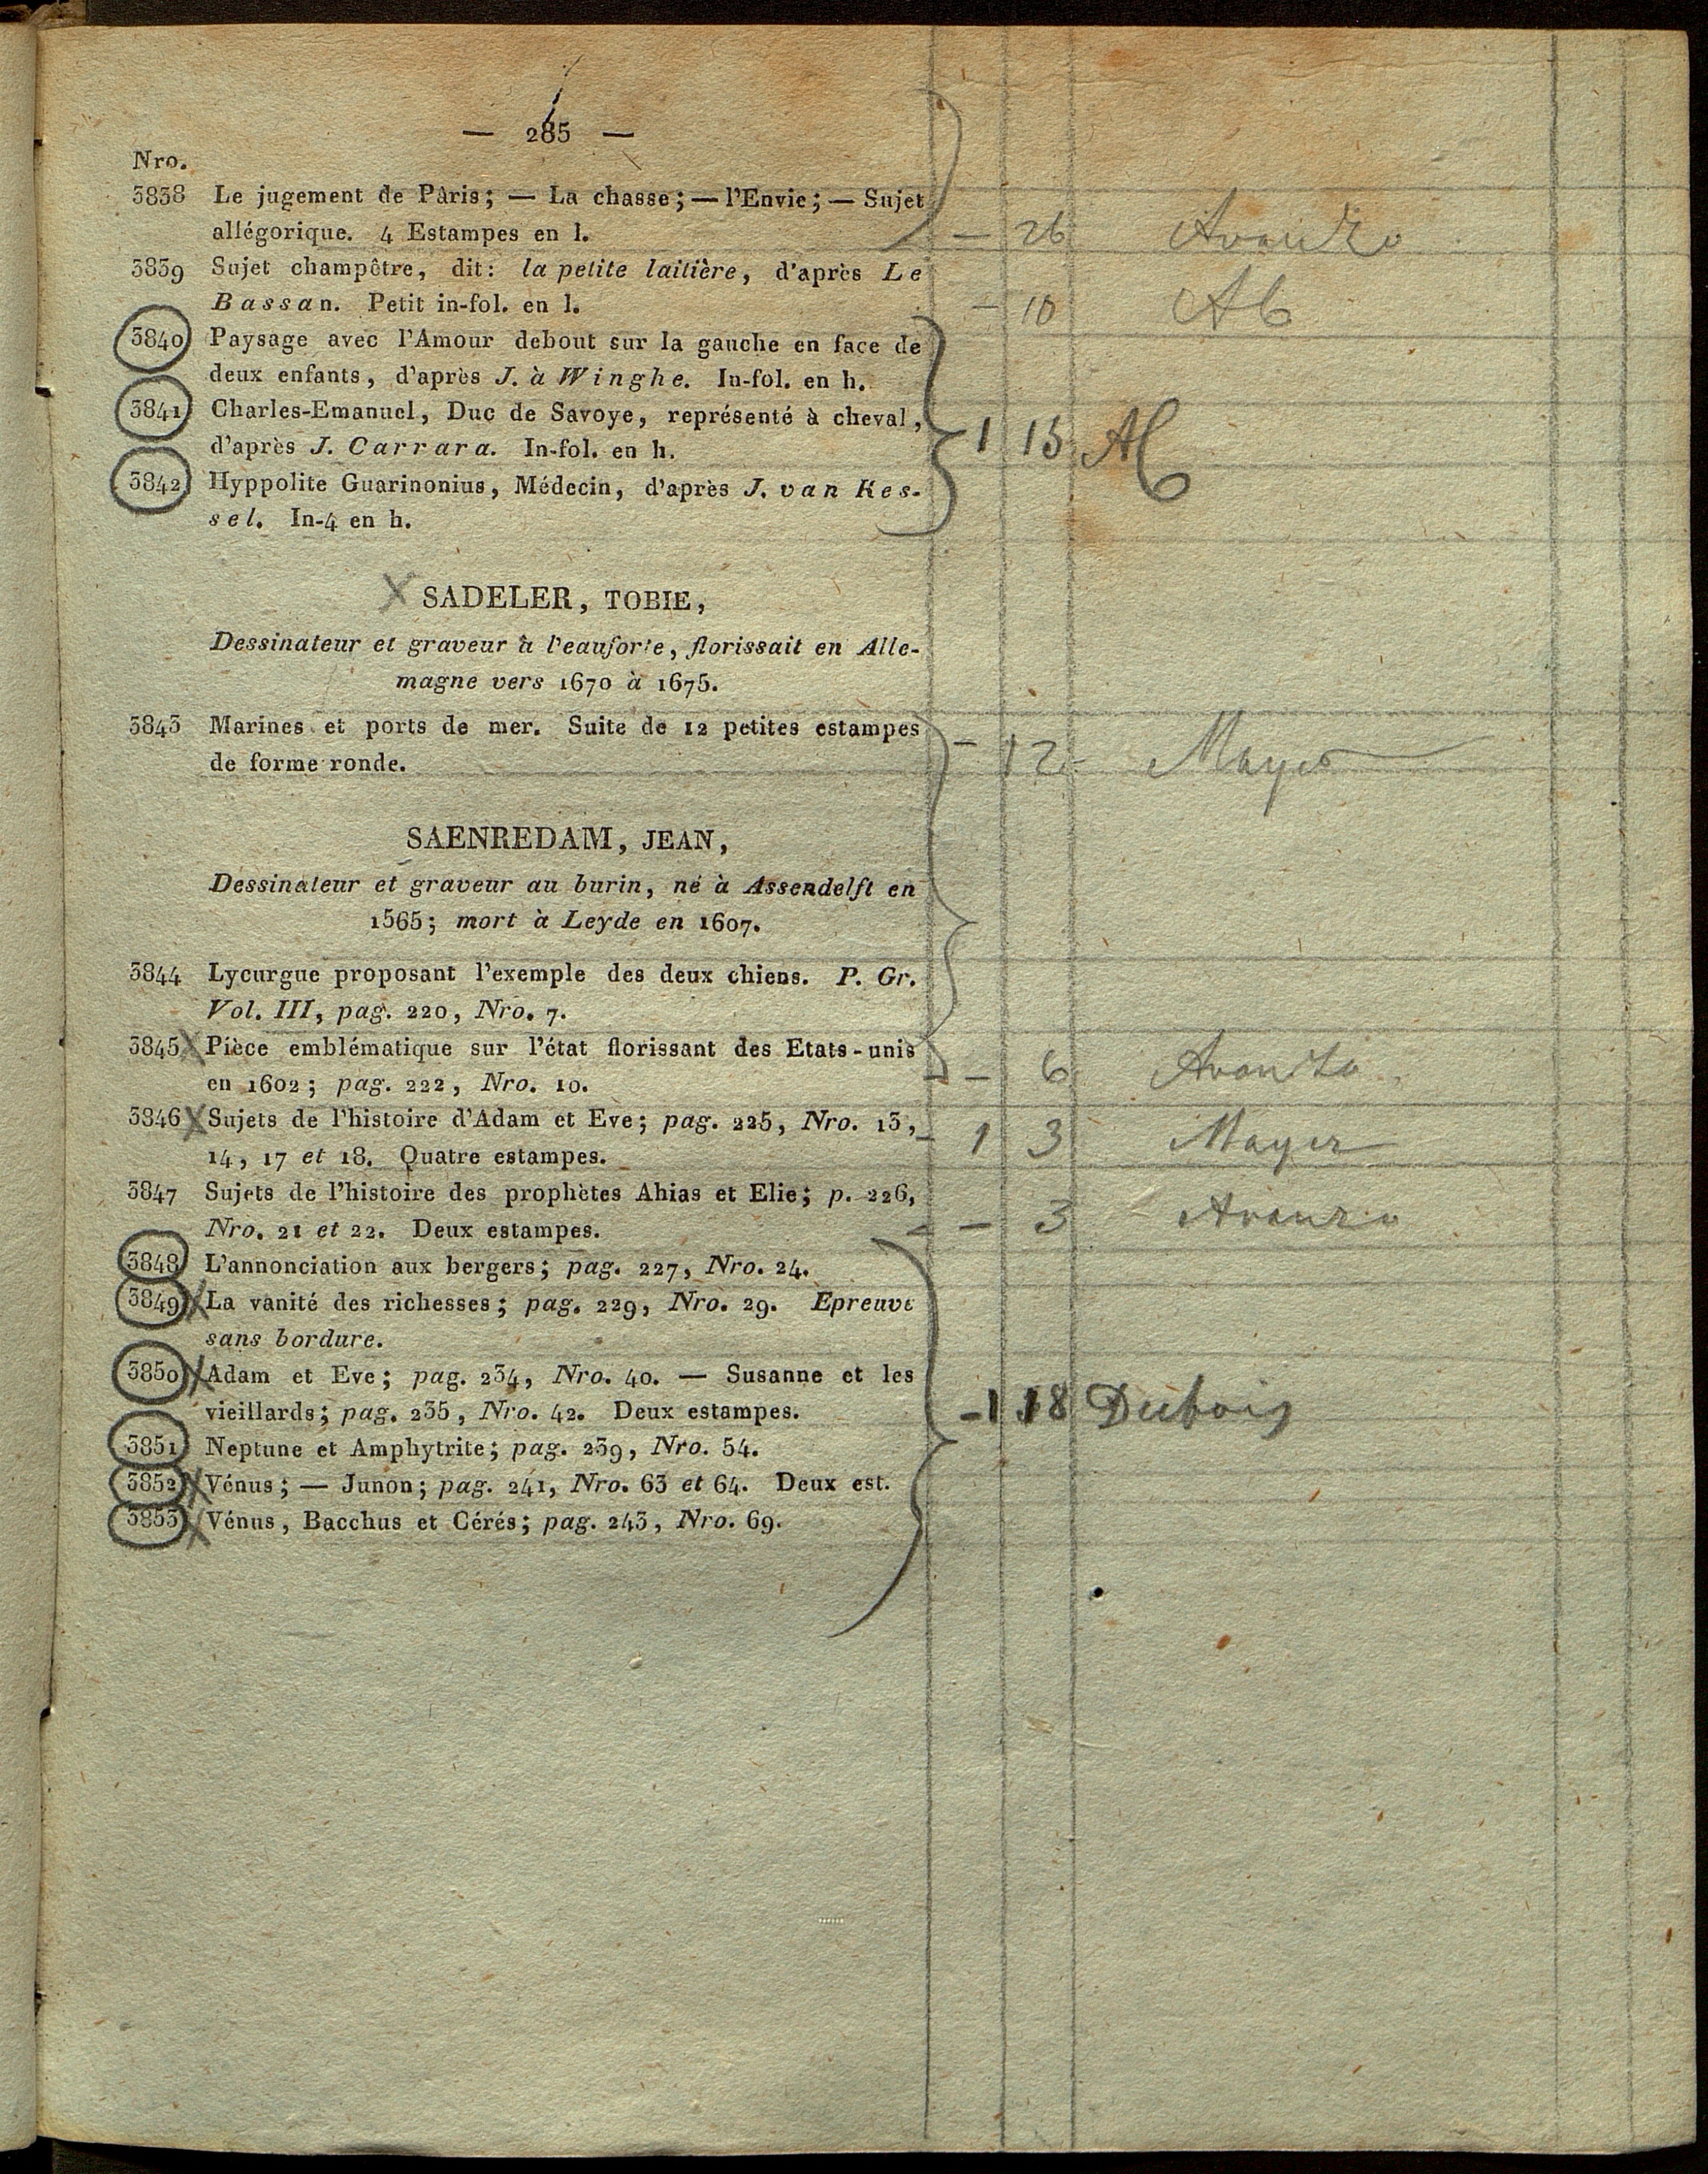 — 285 —
Nro.
3838 Le jugement de Pâris; — La chasse; — l'Envie; — Sujet
allégorique. 4 Estampes en l. — 26 Avanzo
3839 Sujet champêtre, dit: la petite laitière, d'après Le
Bassan. Petit in-fol. en l. — 10 Ab
3840 Paysage avec l'Amour debout sur la gauche en face de
deux enfants, d'après J. à Winghe. In-fol. en h.
3841 Charles-Emanuel, Duc de Savoye, représenté à cheval,
d'après J. Carrara. In-fol. en h. 1 15 Ab
3842 Hyppolite Guarinonius, Médecin, d'après J. van Kes-
sel. In-4 en h.
X SADELER, TOBIE,
Dessinateur et graveur à l'eauforte, florissait en Alle-
magne vers 1670 à 1675.
3843 Marines et ports de mer. Suite de 12 petites estampes
de forme ronde. — 12 Mayer
SAENREDAM, JEAN,
Dessinateur et graveur au burin, né à Assendelft en
1565; mort à Leyde en 1607.
3844 Lycurgue proposant l'exemple des deux chiens. P. Gr.
Vol. III, pag. 220, Nro. 7.
3845 X Pièce emblématique sur l'état florissant des Etats-unis
en 1602; pag. 222, Nro. 10. — 6 Avanzo
3846 X Sujets de l'histoire d'Adam et Eve; pag. 225, Nro. 13, 1 3 Mayer
14, 17 et 18. Quatre estampes.
3847 Sujets de l'histoire des prophètes Ahias et Elie; p. 226,
Nro. 21 et 22. Deux estampes. — 3 Avanzo
3848 L'annonciation aux bergers; pag. 227, Nro. 24.
3849 X La vanité des richesses; pag. 229, Nro. 29. Epreuve
sans bordure.
3850 X Adam et Eve; pag. 234, Nro. 40. — Susanne et les
vieillards; pag. 235, Nro. 42. Deux estampes. 1 18 Dubois
3851 Neptune et Amphytrite; pag. 239, Nro. 54.
3852 X Vénus; — Junon; pag. 241, Nro. 63 et 64. Deux est.
3853 X Vénus, Bacchus et Cérés; pag. 243, Nro. 69.